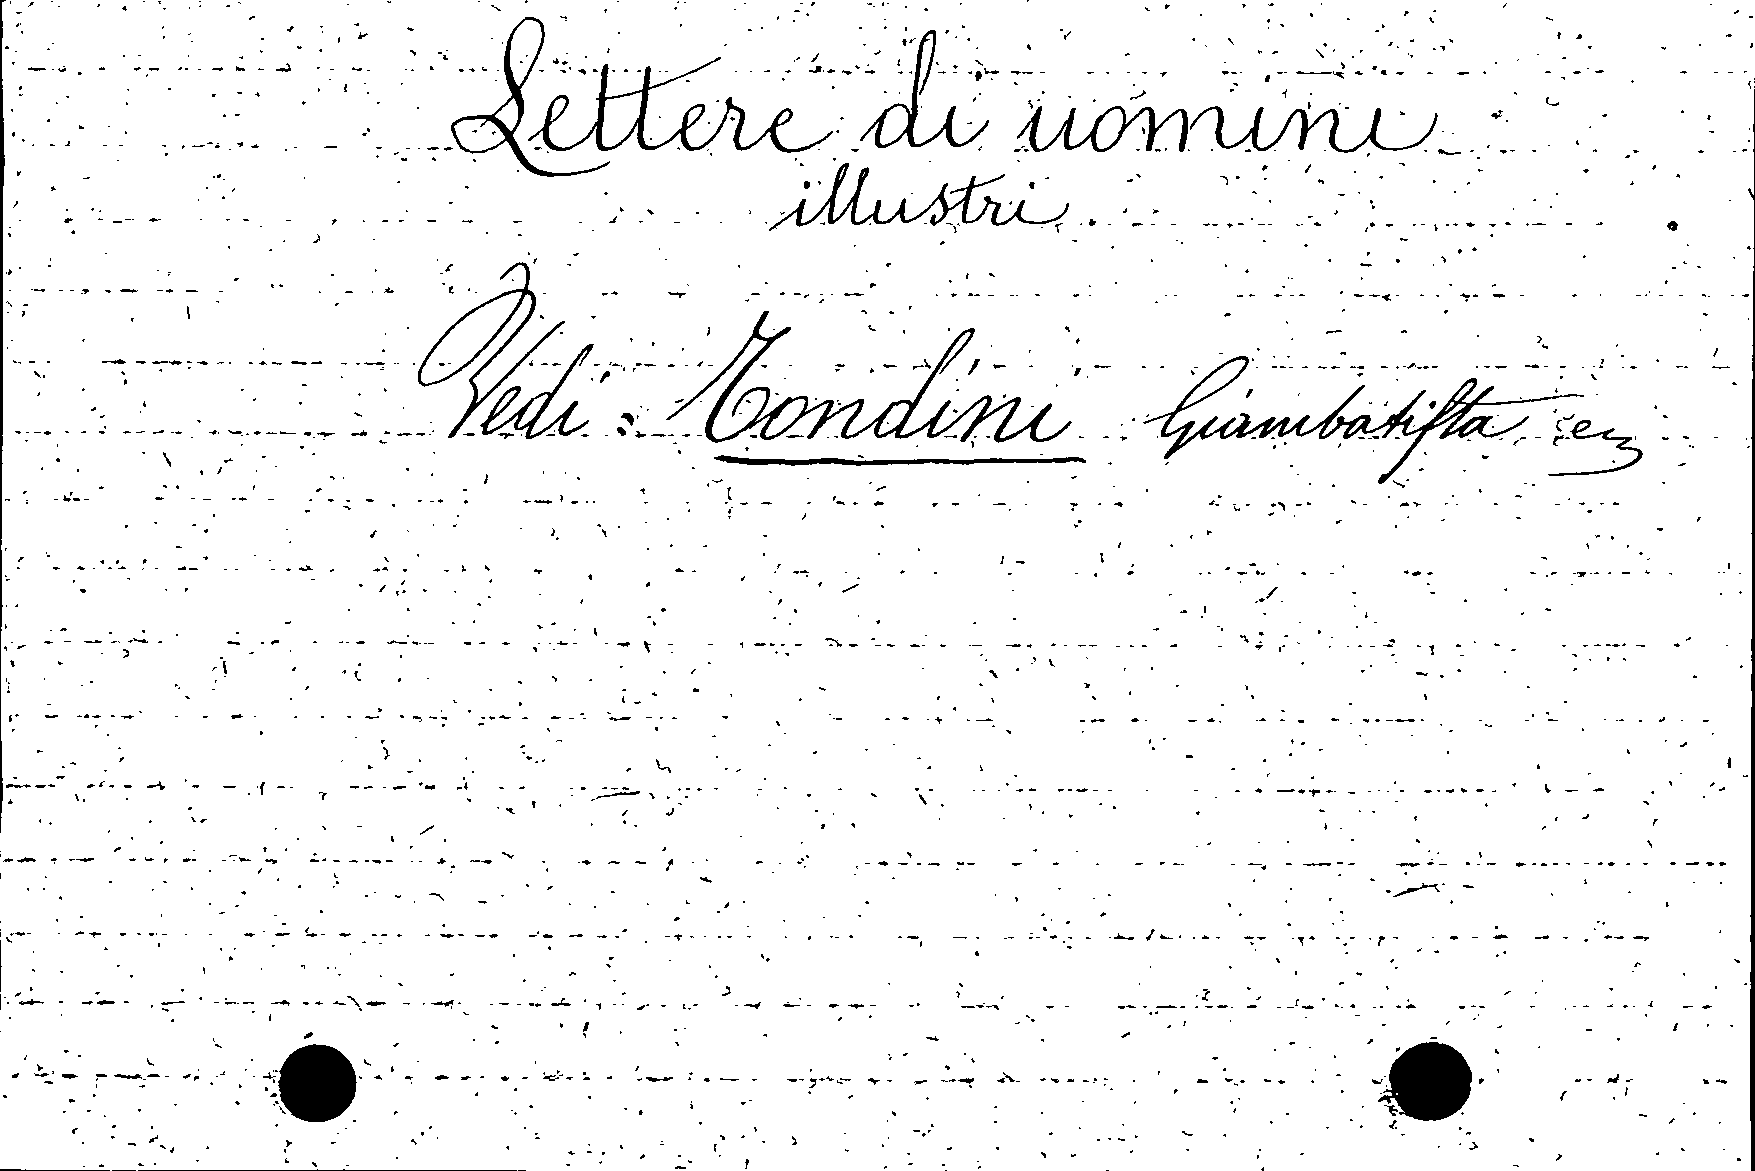 Lettere di uomini
illustri
Vedi: Tondini Giambatista